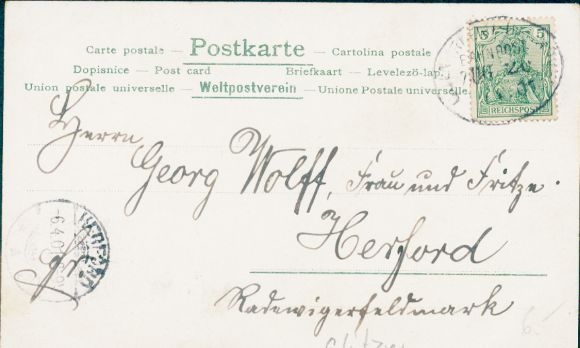 Carte postale — Postkarte — Cartolina postale
Dopisnice — Post card Briefkaart — Levelező-lap
Union postale universelle — Weltpostverein — Unione Postale universelle
5 5
REICHSPOST
Herrn
Georg Wolff, Frau und Fritze.
Herford
Radewigerfeldmark
HERFORD